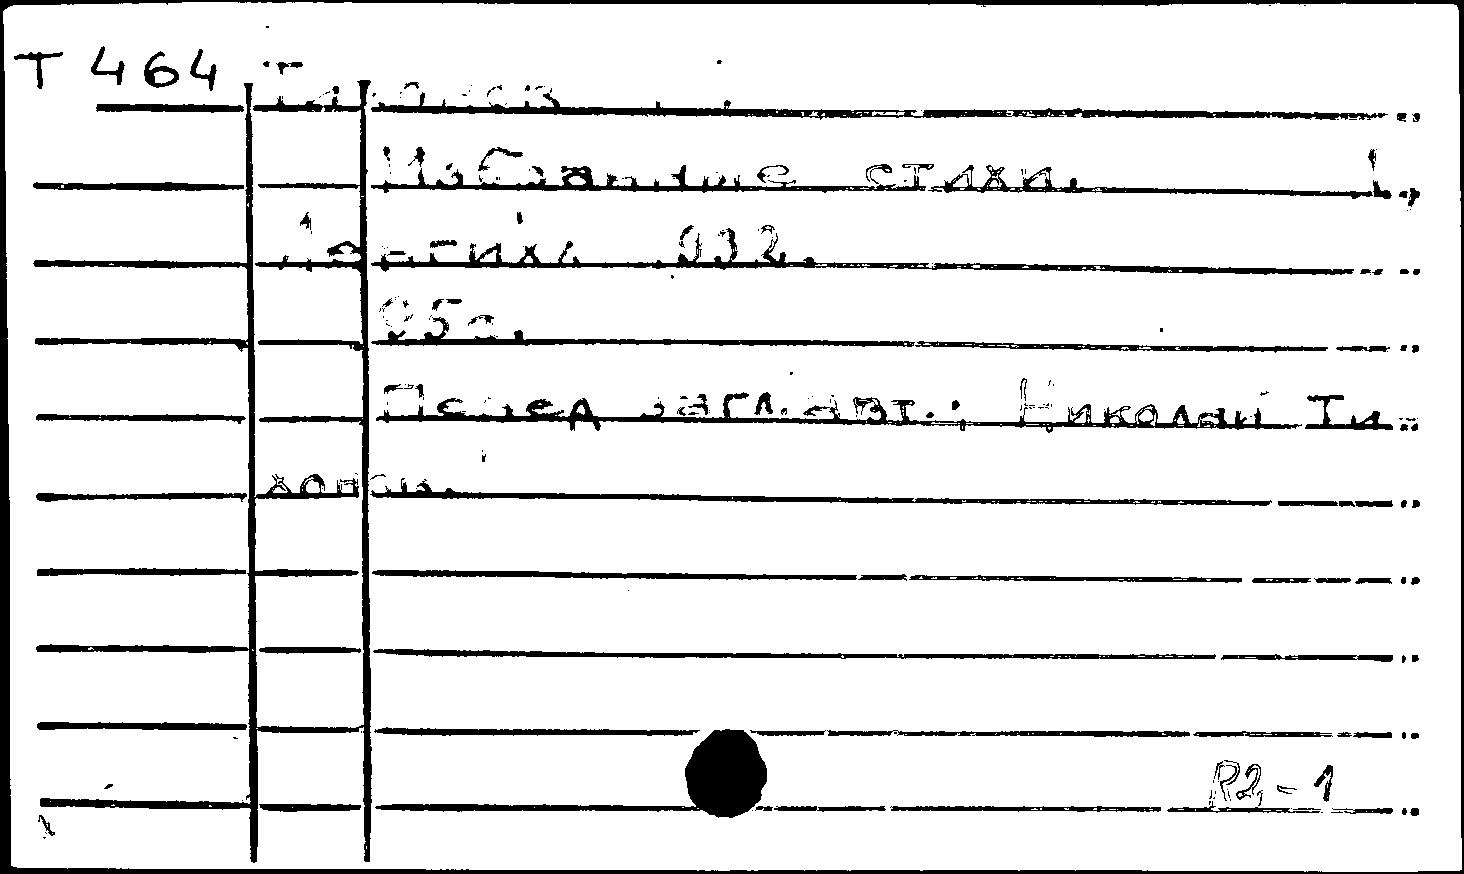 Т 464 Тихонов
Избранные стихи.
932.
95с.
Перед загл. авт.: Николай Ти-
хонов.
R2-1